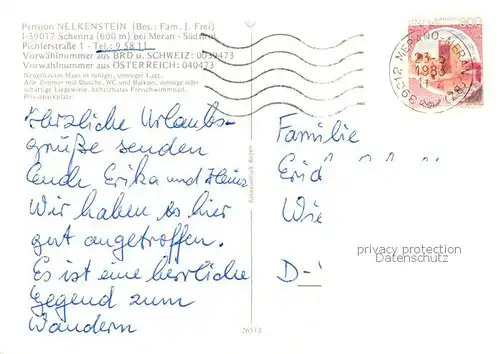 Pension NELKENSTEIN (Bes.: Fam. J. Frei)
I-39017 Schenna (600 m) bei Meran - Südtirol
Pichlerstraße 1 - Tel.: 9 58 11
Vorwählnummer aus BRD u. SCHWEIZ: 0039473
Vorwählnummer aus ÖSTERREICH: 040473
Neuerbautes Haus in ruhiger, sonniger Lage.
Alle Zimmer mit Dusche, WC und Balkon, sonnige oder
schattige Liegewiese, beheizbares Freischwimmbad,
Privatparkplatz.
Herzliche Urlaubs-
grüße senden
Euch Erika und Heinz
Wir haben es hier
gut angetroffen.
Es ist eine herrliche
Gegend zum
Wandern
26513
39012 MERANO-MERAN
23-5
1983
11
(BZ)
Familie
Erid
Wie
D-
privacy protection
Datenschutz